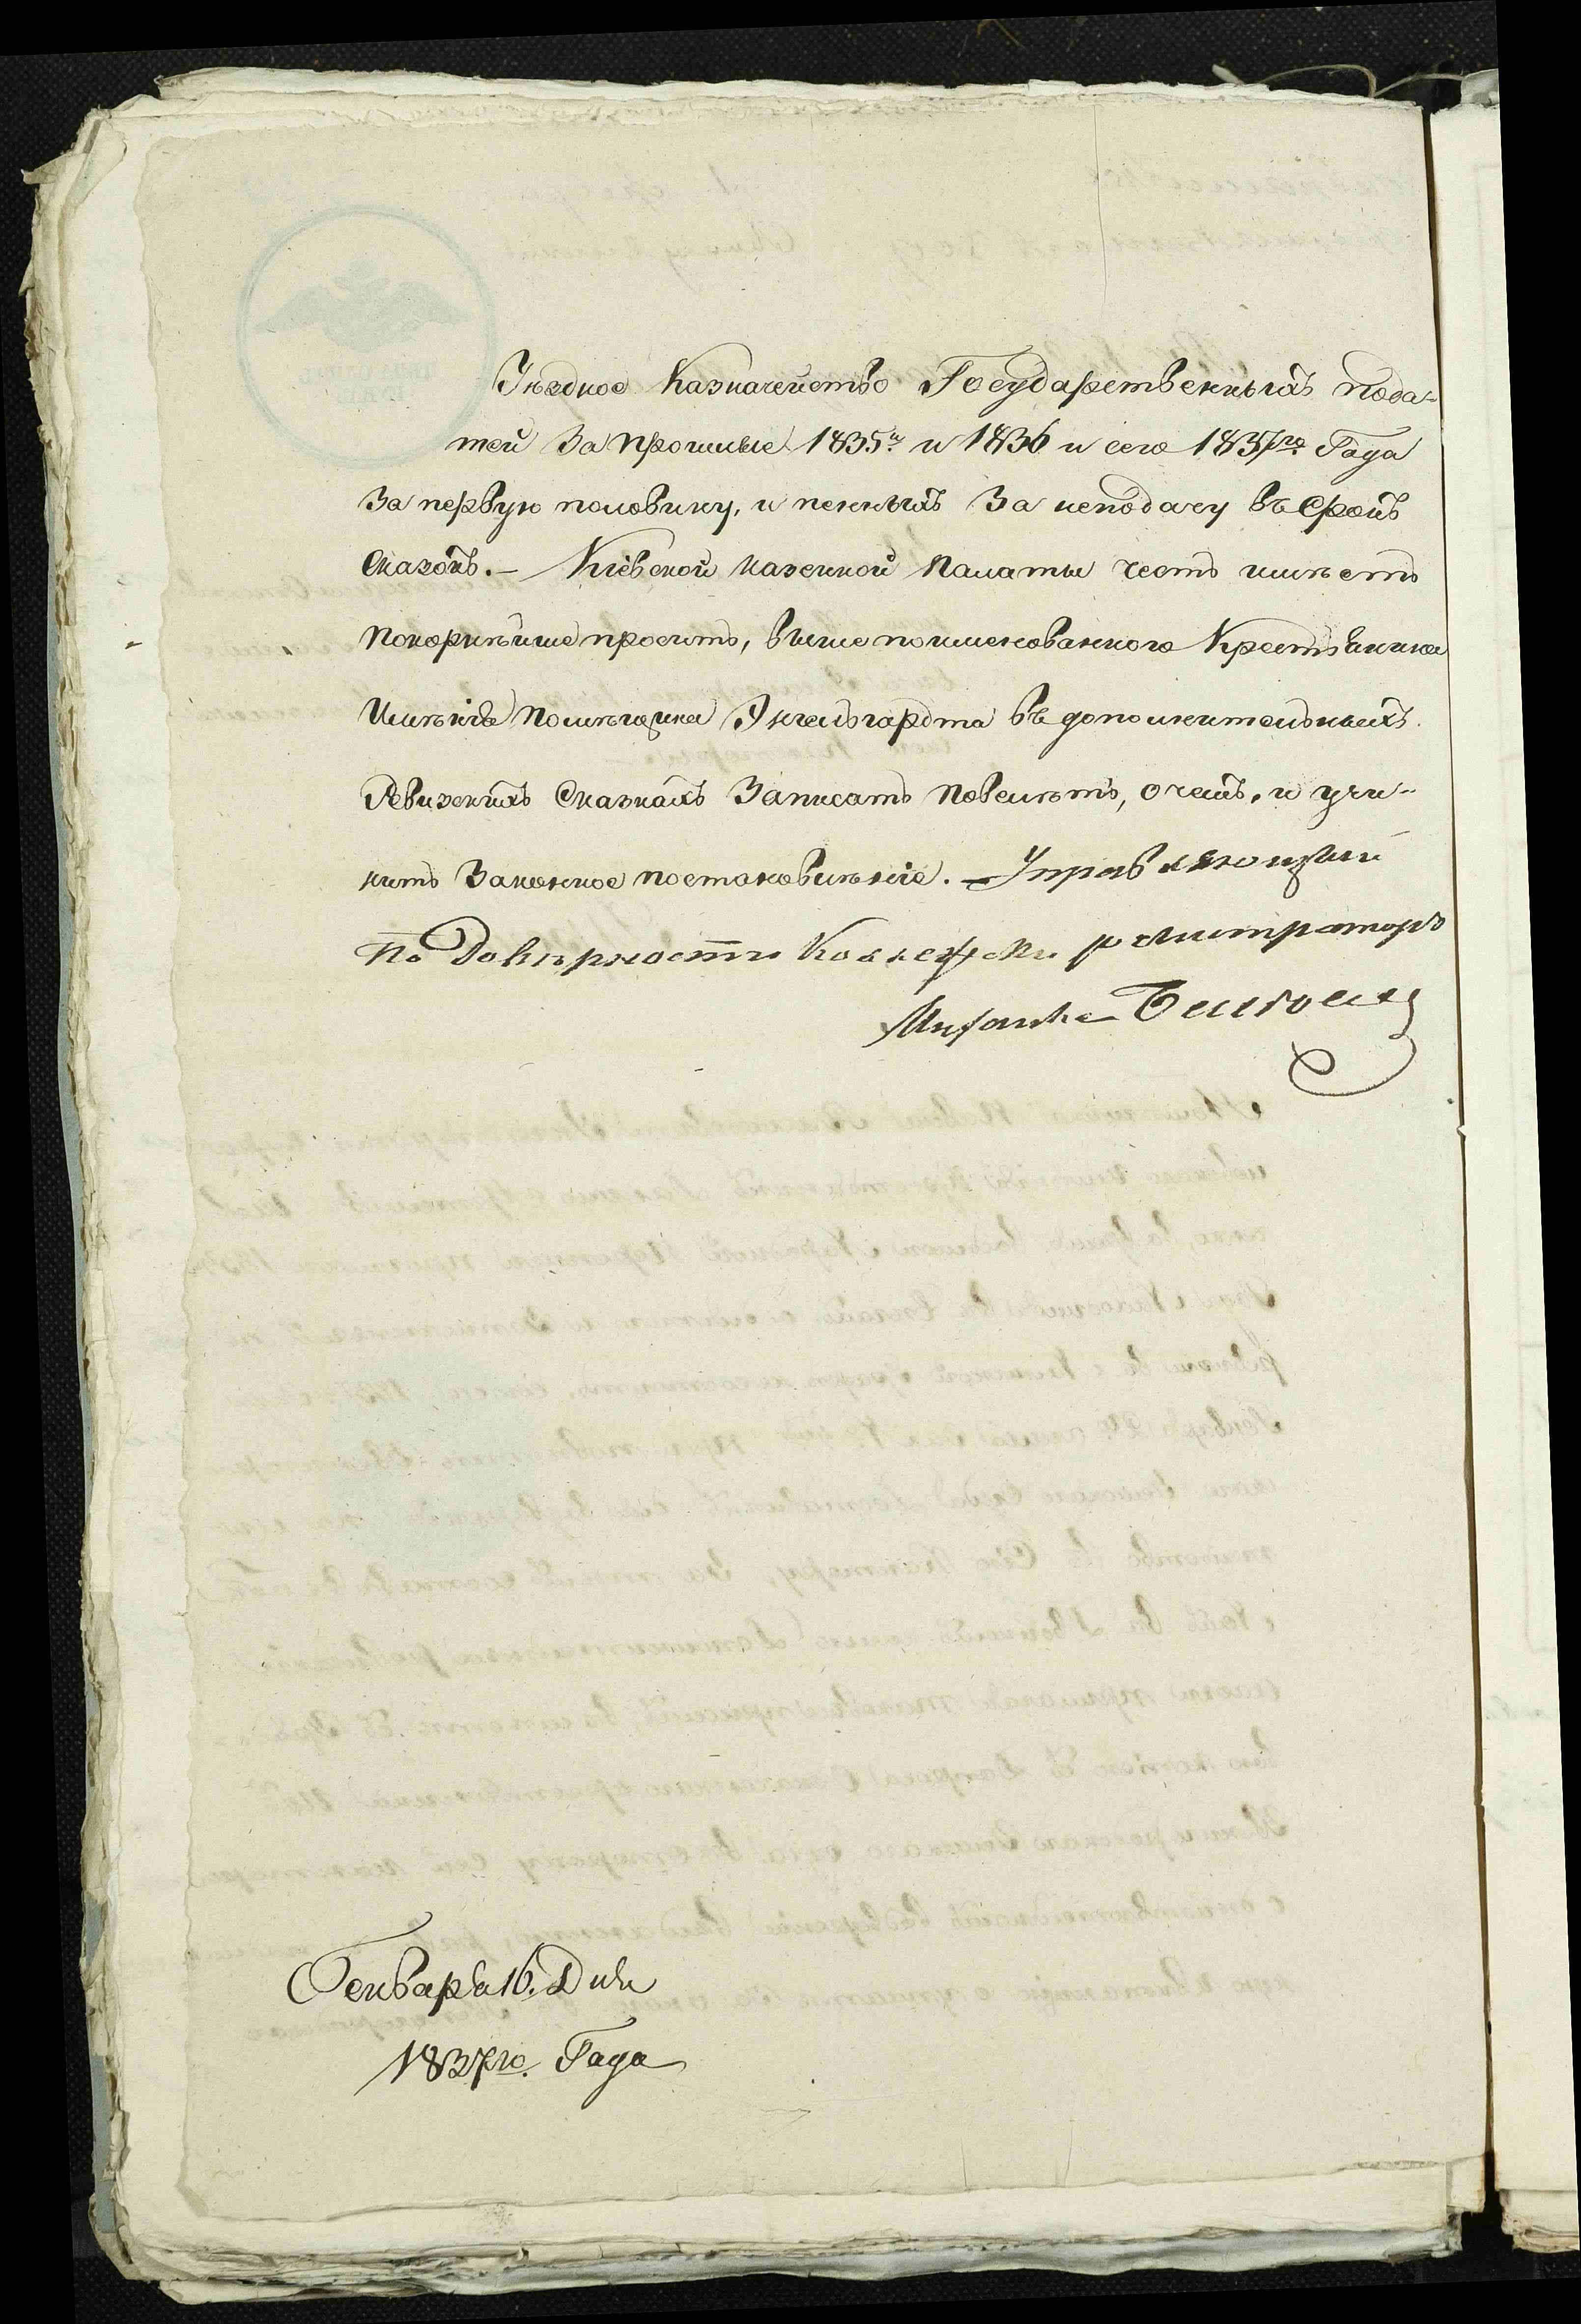 Уѣздное Казначейство Государственныхъ пода-
тей За прошлые 1835й и 1836 и сего 1837го Года
За первую половину, и пенныхъ За неподачу въ Срокъ
Сказокъ. – Кіевской казенной Палаты честь имѣетъ
покорнѣйше просить, выше поименованного Крестьянина
Имѣнія Помѣщика Энгельгардта въ дополнительныхъ
Ревизскихъ Сказкахъ Записать повелѣть, о чемъ, и учи-
нить Законное постановлѣніе. – Управляющий
По Довѣрности Коллежски регистраторъ
Генваря 16. Дня
1837го. Года